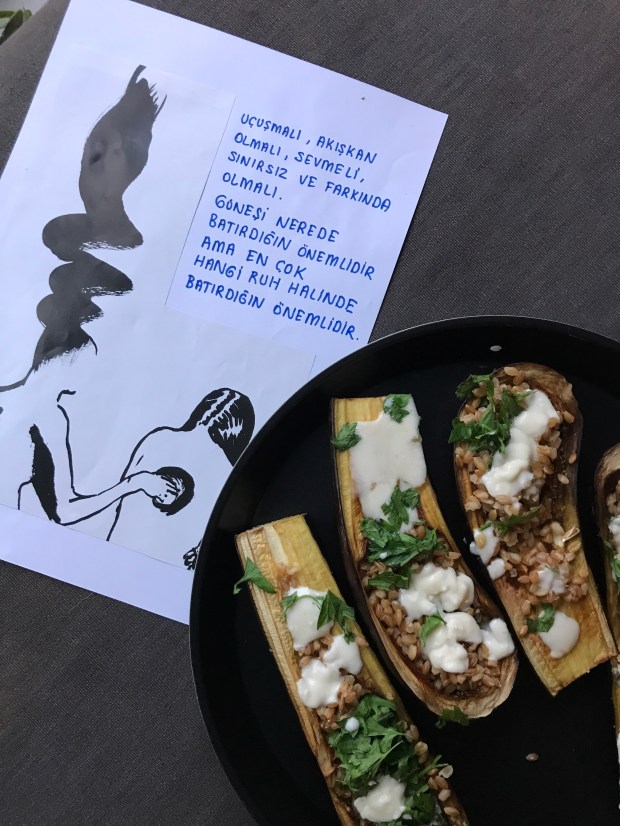 UÇUŞMALI, AKIŞKAN
OLMALI, SEVMELİ,
SINIRSIZ VE FARKINDA
OLMALI.
GÜNEŞİ NEREDE
BATIRDIĞIN ÖNEMLİDİR
AMA EN ÇOK
HANGİ RUH HALINDE
BATIRDIĞIN ÖNEMLİDİR.